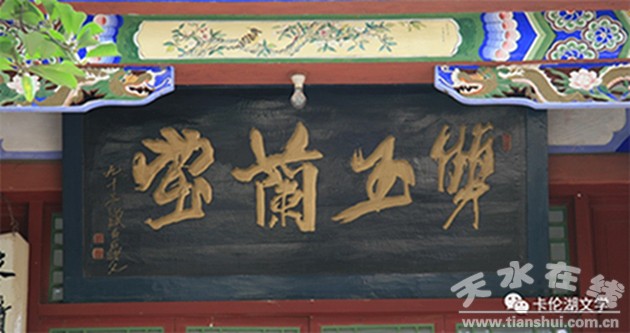 雙玉蘭堂
九十六歲
天水在线
卡伦湖文学
www.tianshui.com.cn